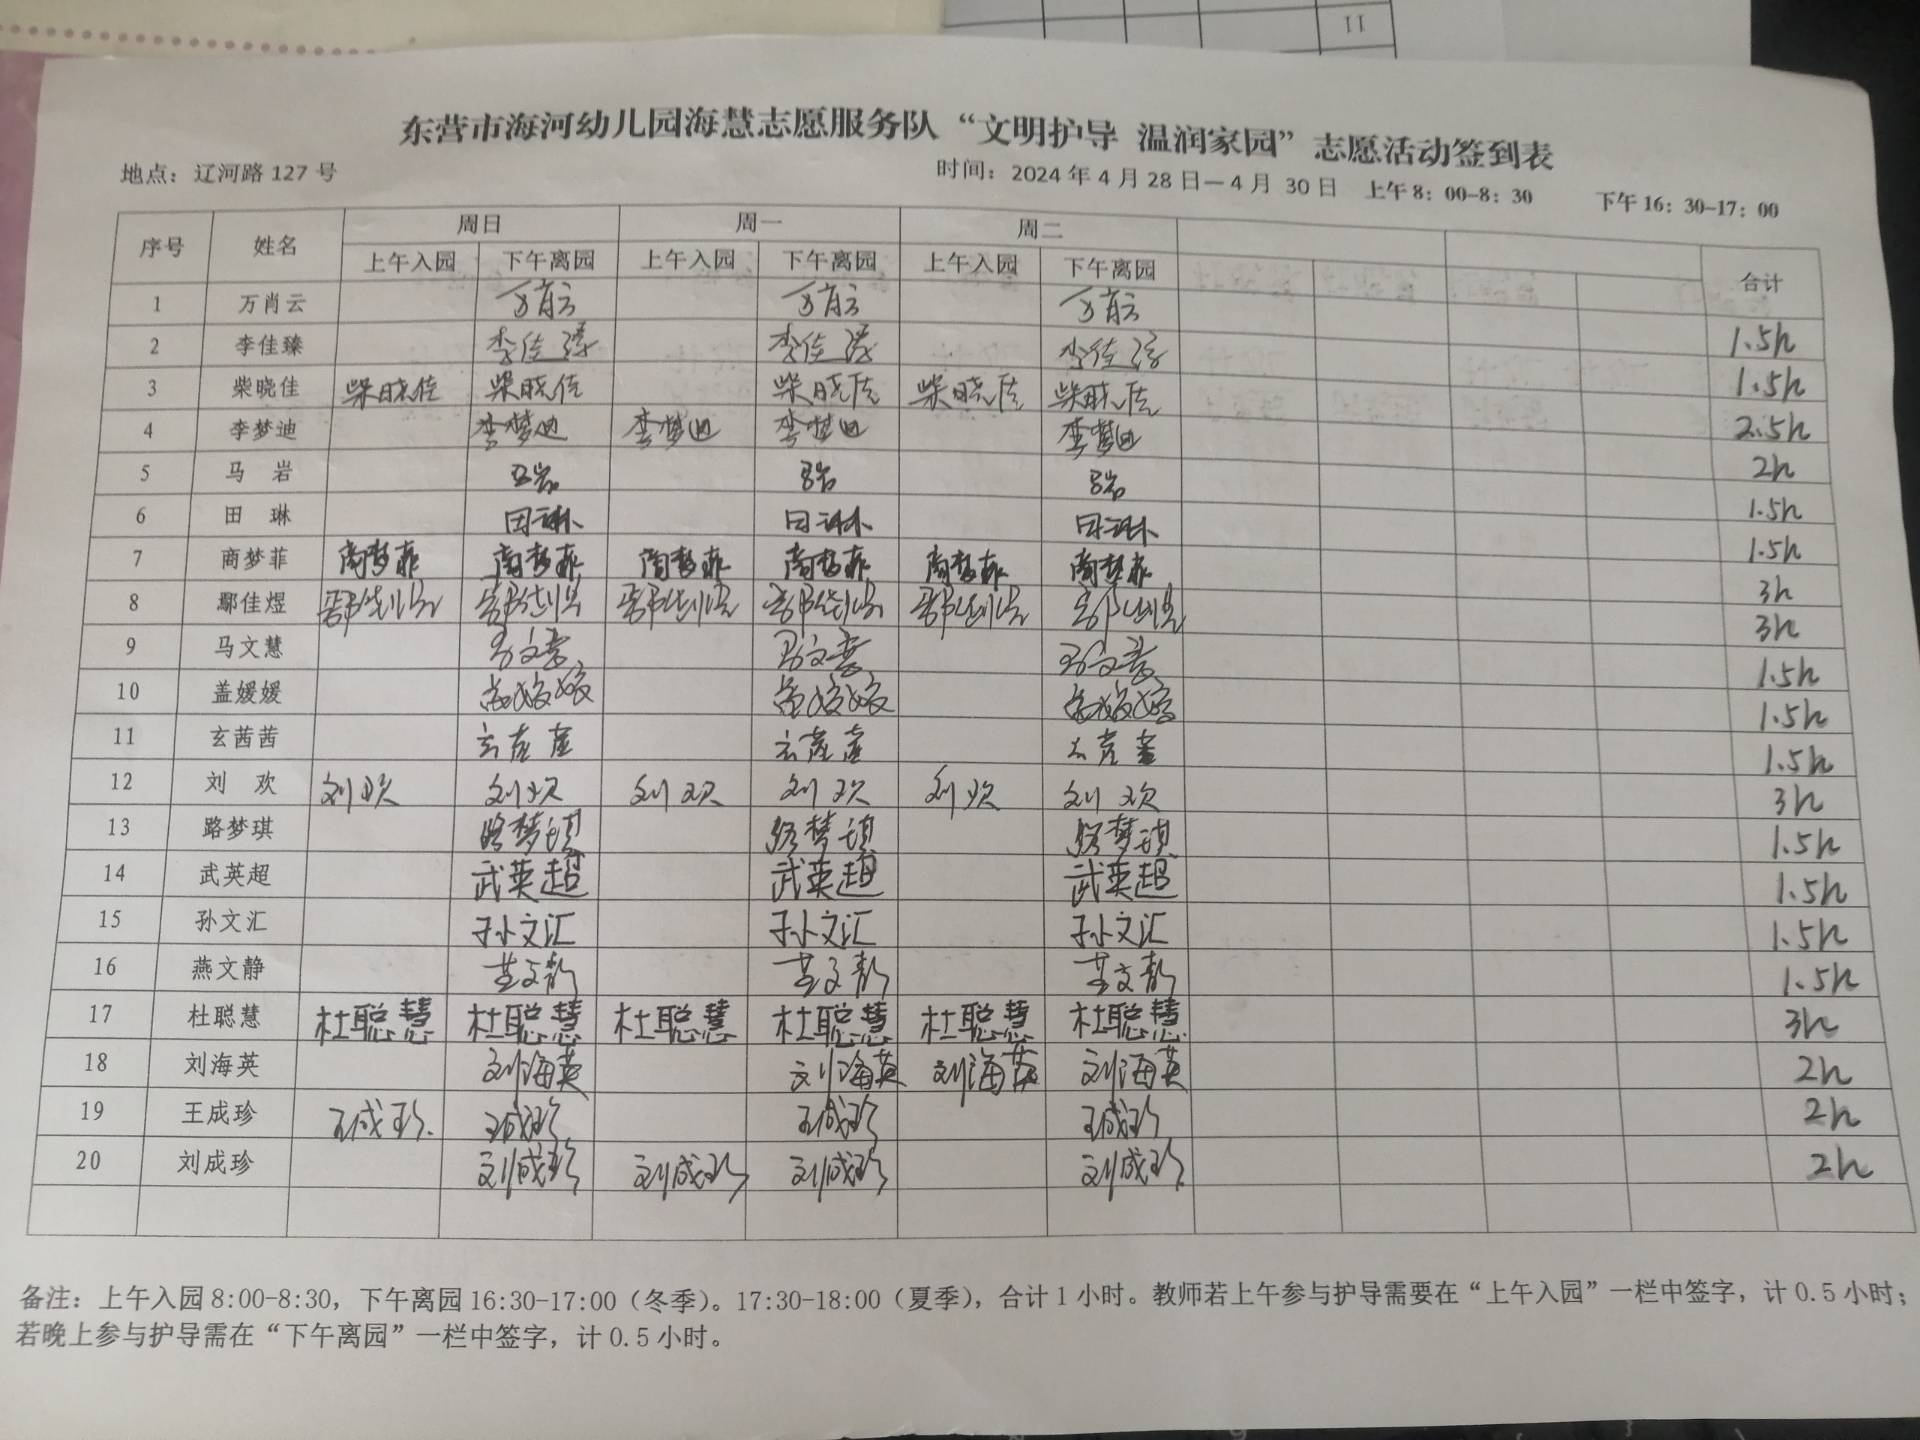 11
东营市海河幼儿园海慧志愿服务队“文明护导 温润家园”志愿活动签到表
地点：辽河路127号 时间：2024年4月28日—4月 30日 上午8：00-8：30 下午16：30-17：00
序号 姓名 周日 周一 周二 合计
上午入园 下午离园 上午入园 下午离园 上午入园 下午离园
1 万肖云 万肖云 万肖云 万肖云 1.5h
2 李佳臻 李佳臻 李佳臻 李佳臻 1.5h
3 柴晓佳 柴晓佳 柴晓佳 柴晓佳 柴晓佳 柴晓佳 2.5h
4 李梦迪 李梦迪 李梦迪 李梦迪 李梦迪 2h
5 马 岩 马岩 马岩 马岩 1.5h
6 田 琳 田琳 田琳 田琳 1.5h
7 商梦菲 商梦菲 商梦菲 商梦菲 商梦菲 商梦菲 商梦菲 3h
8 鄢佳煜 鄢佳煜 鄢佳煜 鄢佳煜 鄢佳煜 鄢佳煜 鄢佳煜 3h
9 马文慧 马文慧 马文慧 马文慧 1.5h
10 盖媛媛 盖媛媛 盖媛媛 盖媛媛 1.5h
11 玄茜茜 玄茜茜 玄茜茜 玄茜茜 1.5h
12 刘 欢 刘欢 刘欢 刘欢 刘欢 刘欢 刘欢 3h
13 路梦琪 路梦琪 路梦琪 路梦琪 1.5h
14 武英超 武英超 武英超 武英超 1.5h
15 孙文汇 孙文汇 孙文汇 孙文汇 1.5h
16 燕文静 燕文静 燕文静 燕文静 1.5h
17 杜聪慧 杜聪慧 杜聪慧 杜聪慧 杜聪慧 杜聪慧 杜聪慧 3h
18 刘海英 刘海英 刘海英 刘海英 刘海英 2h
19 王成珍 王成珍 王成珍 王成珍 王成珍 2h
20 刘成珍 刘成珍 刘成珍 刘成珍 刘成珍 2h
备注：上午入园8:00-8:30，下午离园16:30-17:00（冬季）。17:30-18:00（夏季），合计1小时。教师若上午参与护导需要在“上午入园”一栏中签字，计0.5小时；
若晚上参与护导需在“下午离园”一栏中签字，计0.5小时。